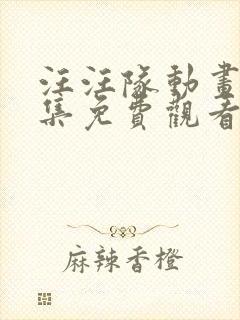 汪汪隊動畫
集免費觀看
麻辣香橙